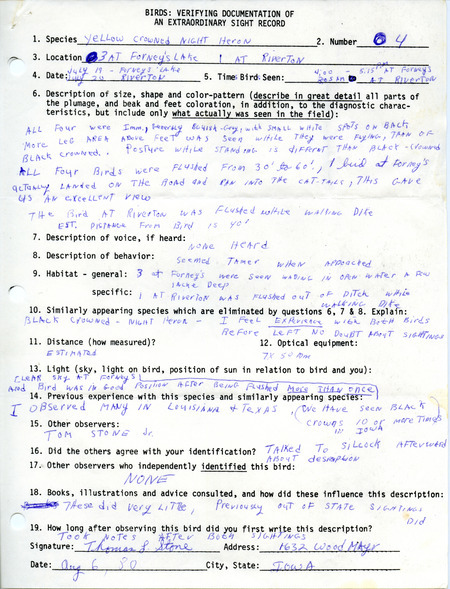 BIRDS: VERIFYING DOCUMENTATION OF
AN EXTRAORDINARY SIGHT RECORD
1. Species YELLOW CROWNED NIGHT HERON 2. Number 4
3. Location 3 AT Forney's LAKE 1 AT RIVERTON
4. Date: July 19 - Forney's Lake 5. Time Bird Seen: 4:00 - 5:15 PM AT Forney's
July 20 RIVERTON AT RIVERTON
6. Description of size, shape and color-pattern (describe in great detail all parts of
the plumage, and beak and feet coloration, in addition, to the diagnostic charac-
teristics, but include only what actually was seen in the field):
ALL Four were Imm, Generally Bluish-Grey, with small white spots on Back
"More LEG AREA ABOVE FEET" WAS SEEN WHILE THEY WERE FLYING, THAN OF
BLACK crowned. Posture while STANDING is different THAN BLACK-Crowned
ALL Four Birds were FLUSHED From 30' to 60', 1 bird at Forney's
actually LANDED ON THE ROAD and RAN INTO THE CAT-TAILS, THIS GAVE
US AN EXCELLENT VIEW
THE Bird AT RIVERTON WAS FLUSHED WHILE WALKING DIKE
EST. DISTANCE From Bird is 40'
7. Description of voice, if heard:
NONE HEARD
8. Description of behavior:
SEEMED TAMER WHEN APPROACHED
9. Habitat - general: 3 at Forney's were seen WADING IN OPEN WATER A FEW
INCHES DEEP
specific: 1 AT RIVERTON WAS FLUSHED OUT OF DITCH WHILE
WALKING DIKE
10. Similarly appearing species which are eliminated by questions 6, 7 & 8. Explain:
BLACK CROWNED - NIGHT HERON - I FEEL EXPERIENCE with BOTH Birds
BEFORE LEFT NO DOUBT ABOUT SIGHTINGS
11. Distance (how measured)? 12. Optical equipment:
ESTIMATED 7X 50 mm
13. Light (sky, light on bird, position of sun in relation to bird and you):
CLEAR SKY AT FORNEY'S
AND Bird WAS IN GOOD POSITION AFTER BEING FLUSHED MORE THAN ONCE
14. Previous experience with this species and similarly appearing species:
I OBSERVED MANY IN LOUISIANA & TEXAS, (WE HAVE SEEN BLACK
CROWNS 10 or more Times
IN IOWA
15. Other observers:
TOM STONE Jr.
16. Did the others agree with your identification? TALKED TO SILCOCK AFTERWARD
ABOUT description
17. Other observers who independently identified this bird:
NONE
18. Books, illustrations and advice consulted, and how did these influence this description:
These did very LITTLE, PREVIOUSLY OUT OF STATE SIGHTINGS
DID
19. How long after observing this bird did you first write this description?
TOOK NOTES AFTER BOTH SIGHTINGS
Signature: Thomas L Stone Address: 1632 Wood Mayr
Date: Aug 6, 80 City, State: IOWA